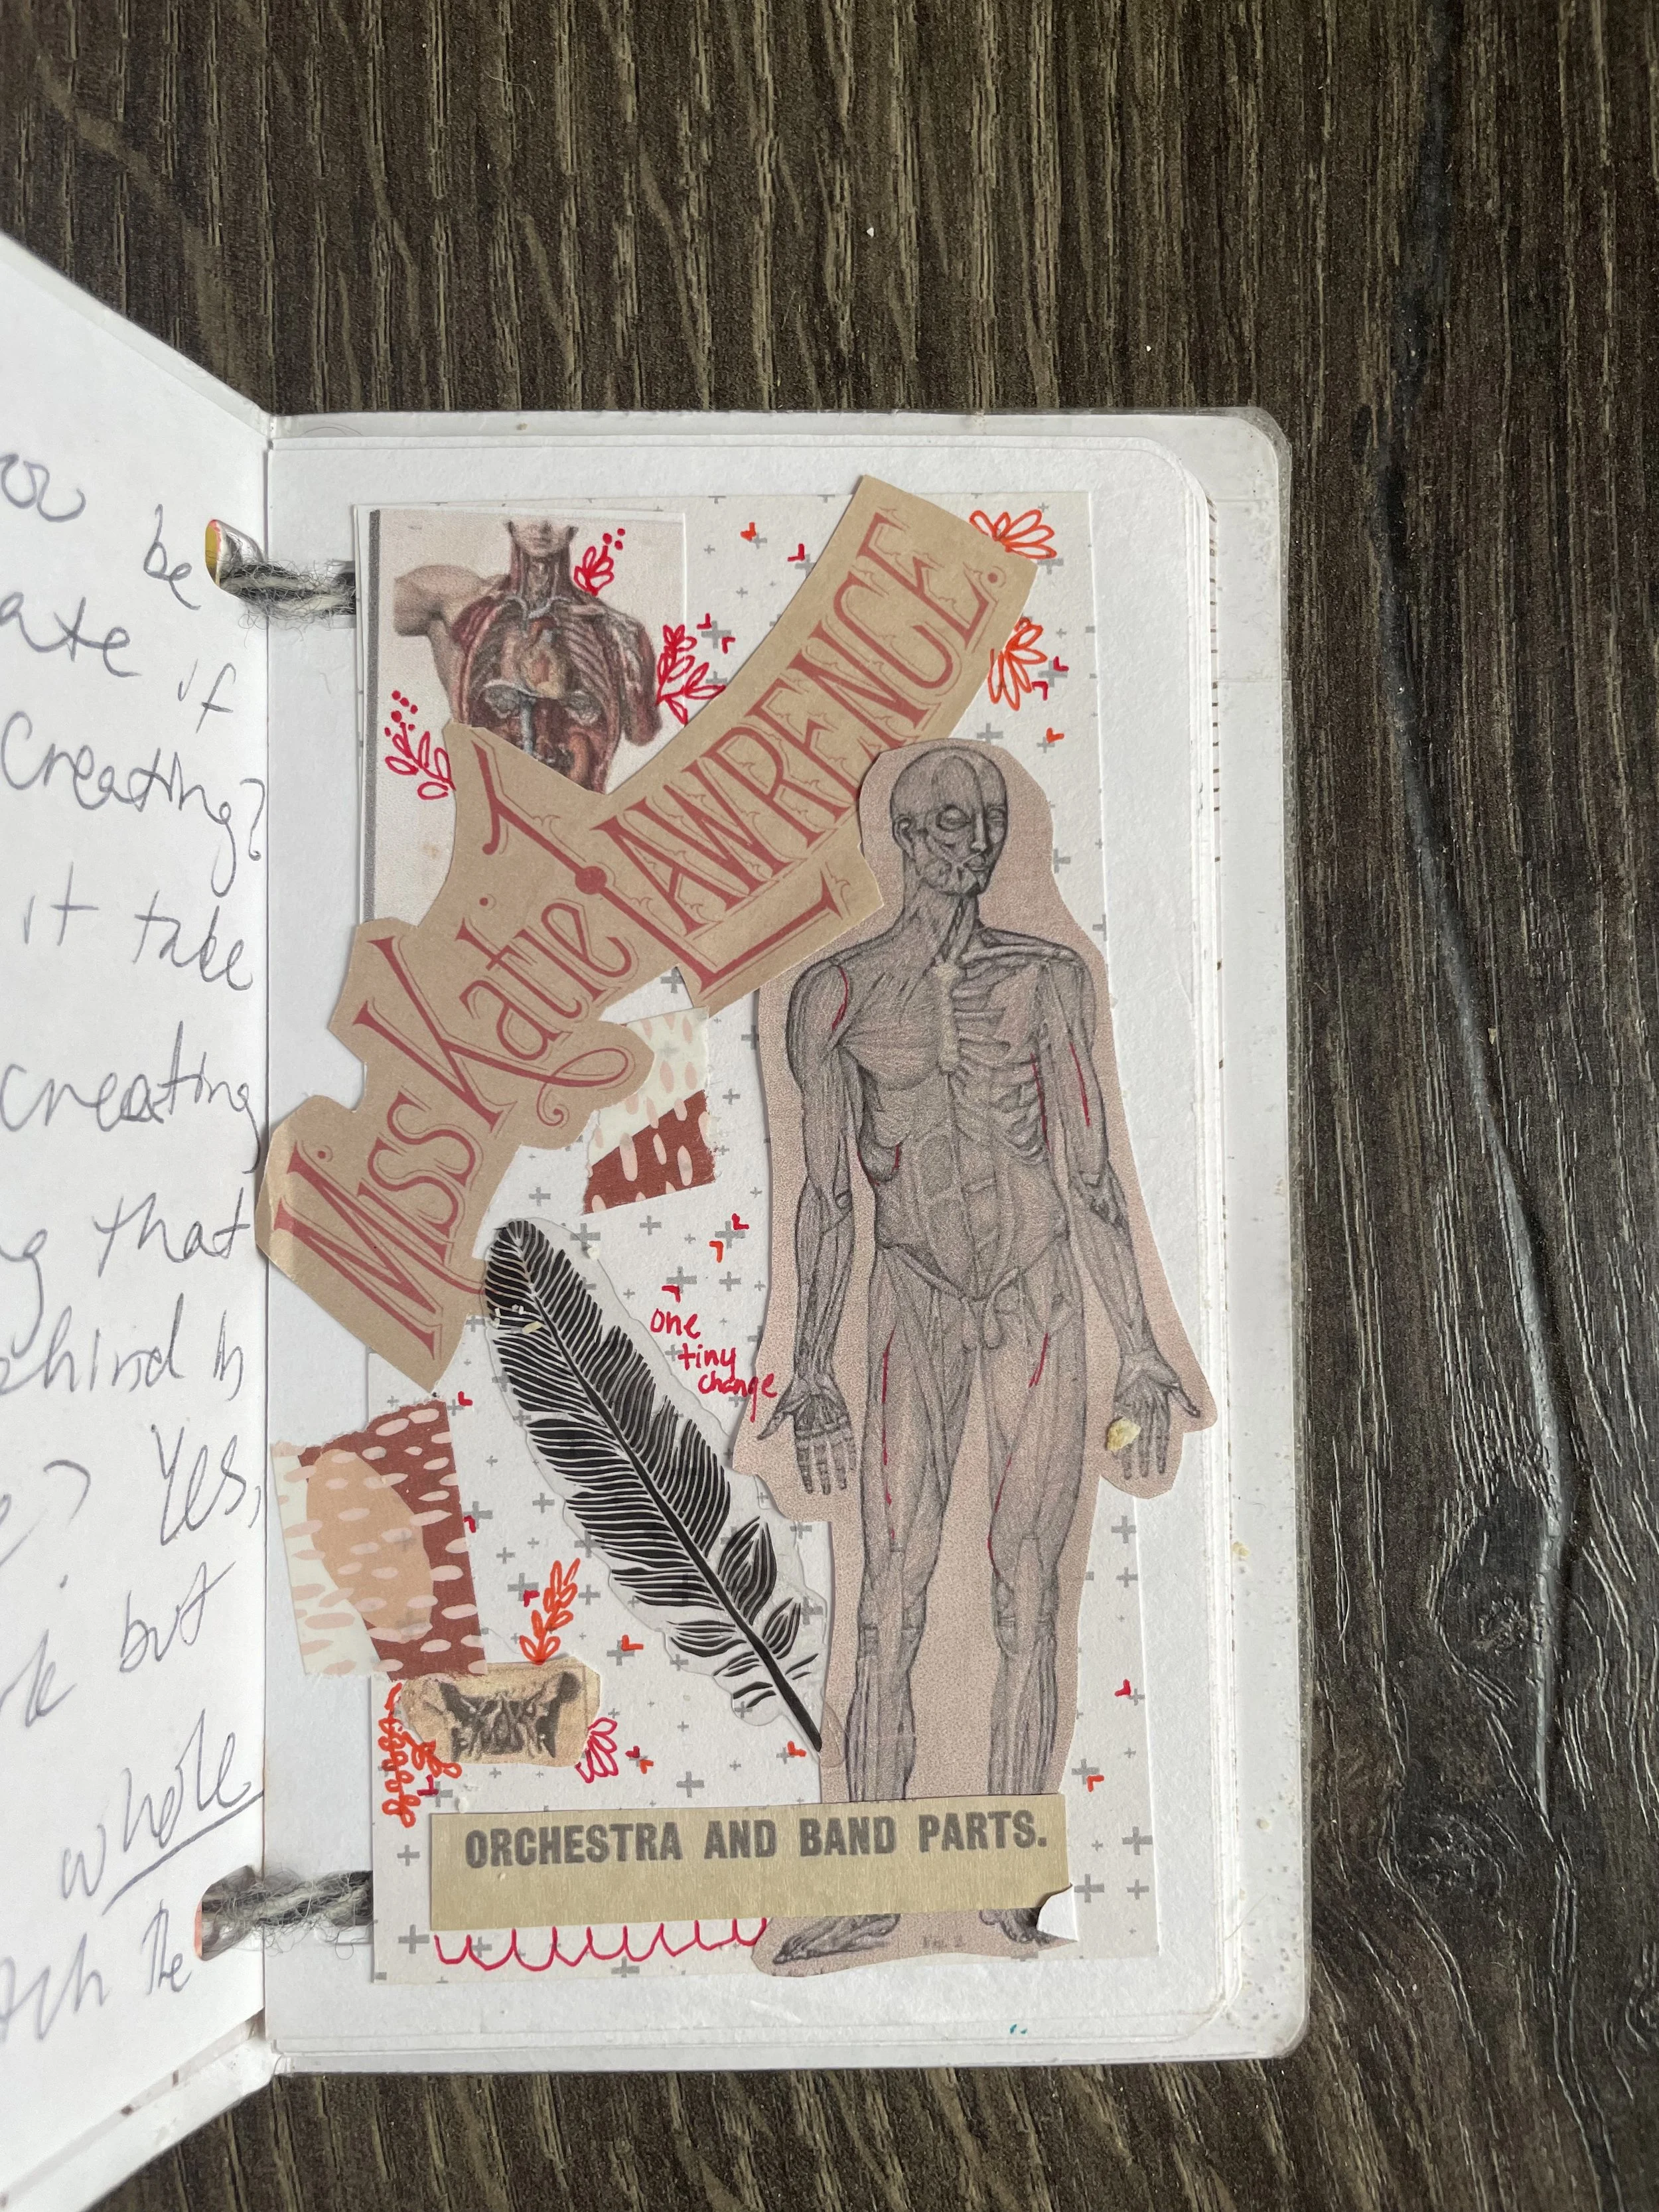 be
ate if
Creating?
it take
creating
that
hind in
Yes,
but
whole
the
Miss Katie Lawrence.
one
tiny
change
ORCHESTRA AND BAND PARTS.